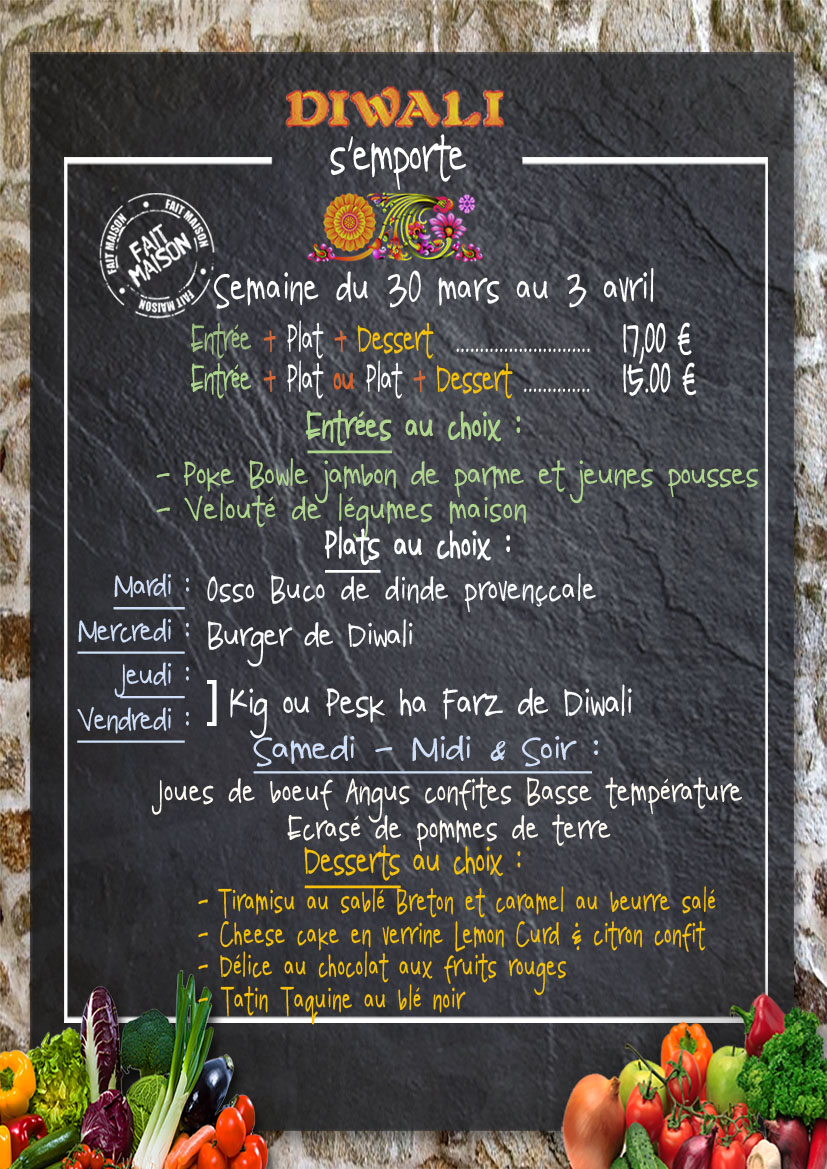 DIWALI
s'emporte
FAIT MAISON
FAIT MAISON
FAIT MAISON
FAIT
MAISON
Semaine du 30 mars au 3 avril
Entrée + Plat + Dessert ............................. 17,00 €
Entrée + Plat ou Plat + Dessert .............. 15.00 €
Entrées au choix :
- Poke Bowle jambon de parme et jeunes pousses
- Velouté de légumes maison
Plats au choix :
Mardi : Osso Buco de dinde provençcale
Mercredi : Burger de Diwali
Jeudi :
Vendredi : ] Kig ou Pesk ha Farz de Diwali
Samedi - Midi & Soir :
Joues de boeuf Angus confites Basse température
Ecrasé de pommes de terre
Desserts au choix :
- Tiramisu au sablé Breton et caramel au beurre salé
- Cheese cake en verrine Lemon Curd & citron confit
- Délice au chocolat aux fruits rouges
- Tatin Taquine au blé noir